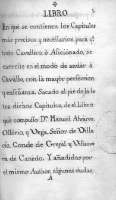 LIBRO
En que se contienen los Capitulos
mas precisos, y necessarios para qe.
todo Cavallero, ò Aficionado, se
exercite en el modo de enviar à
Cavallo, con la mayor perfeccion
y enseñanza. Sacado al pie de la le
tra dichos Capitulos, de el Libro
que compuso Dn. Manuel Alvarez
Ossorio, y Vega, Señor de Villa
cis, Conde de Grajal, y Villanue
va de Canedo. Y añadidas por
el mismo Author algunas dudas,
A